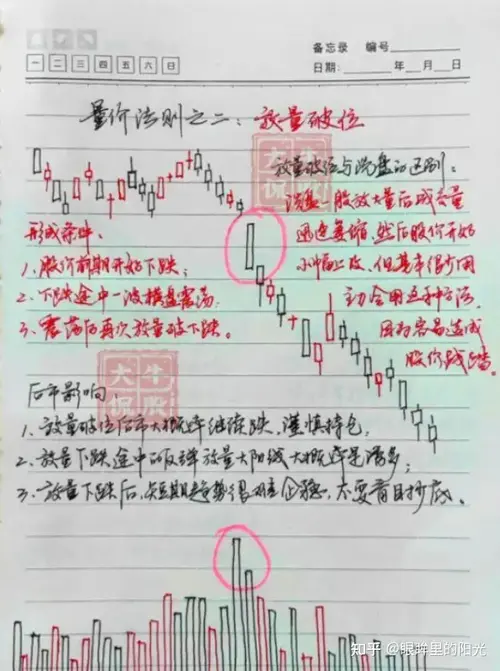 备忘录 编号
一 二 三 四 五 六 日
日期: 年 月 日
量价法则之二:放量破位
放量破位与洗盘的区别:
洗盘一般放大量后成交量
迅速萎缩,然后股价开始
小幅上攻,但基本很少用
主力会用这种方法,
因为容易造成
股价践踏。
形成条件:
1、股价前期开始下跌;
2、下跌途中一波横盘震荡;
3、震荡后再次放量破下跌。
大牛
侃股
大牛
侃股
后市影响,
1、放量破位后市大概率继续跌,谨慎持仓,
2、放量下跌途中的反弹放量大阳线大概率是诱多;
3、放量下跌后,短期趋势很难企稳,不要盲目抄底。
知乎 @眼眸里的阳光